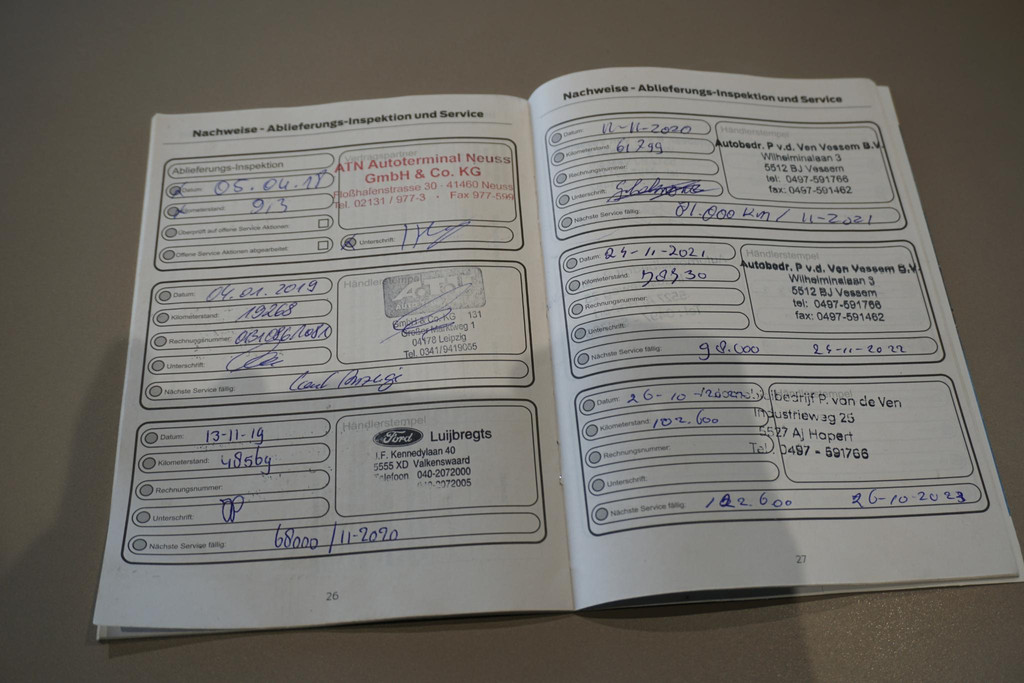 Nachweise - Ablieferungs-Inspektion und Service
Ablieferungs-Inspektion
Datum: 05.04.18
Kilometerstand: 9,3
Überprüft auf offene Service-Aktionen
Offene Service Aktionen abgearbeitet:
ATN Autoterminal Neuss
GmbH & Co. KG
Floßhafenstrasse 30 - 41460 Neuss
Tel. 02131 / 977-3 · Fax 977-599
Unterschrift:
Datum: 04.01.2019
Kilometerstand: 19268
Rechnungsnummer:
Unterschrift:
Nächste Service fällig:
Händlerstempel
GmbH & Co. KG 131
04178 Leipzig
Tel. 0341/9419055
Datum: 13-11-19
Kilometerstand: 48569
Rechnungsnummer:
Unterschrift:
Nächste Service fällig: 68000 / 11-2020
Händlerstempel
Ford Luijbregts
J.F. Kennedylaan 40
5555 XD Valkenswaard
Telefoon 040-2072000
040-2072005
26
Nachweise - Ablieferungs-Inspektion und Service
Datum: 12-11-2020
Kilometerstand: 61799
Rechnungsnummer:
Unterschrift:
Nächste Service fällig: 81.000 km / 11-2021
Händlerstempel
Autobedr. P v.d. Ven Vessem B.V.
Wilhelminalaan 3
5512 BJ Vessem
tel: 0497-591766
fax: 0497-591462
Datum: 24-11-2021
Kilometerstand:
Rechnungsnummer:
Unterschrift:
Nächste Service fällig: 98.000 24-11-2022
Händlerstempel
Autobedr. P v.d. Ven Vessem B.V.
Wilhelminalaan 3
5512 BJ Vessem
tel: 0497-591766
fax: 0497-591462
Datum: 26-10-
Kilometerstand: 102.600
Rechnungsnummer:
Unterschrift:
Nächste Service fällig: 122.600 26-10-2023
Händlerstempel
bedrijf P. van de Ven
Industrieweg 25
5527 AJ Hapert
Tel. 0497 - 591766
27